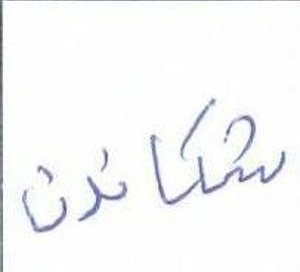 شکاندن